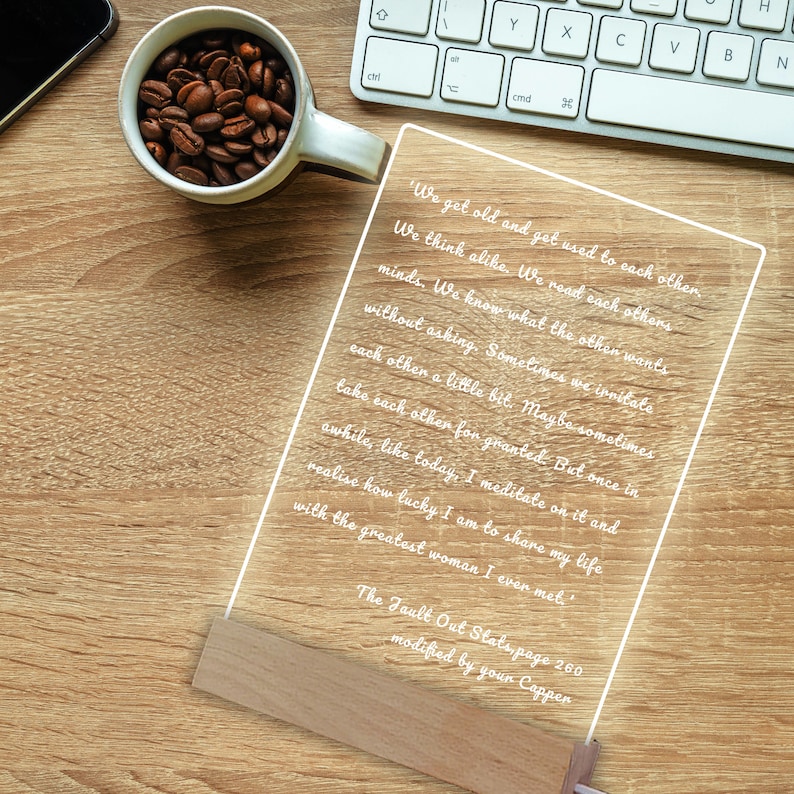 Y X C V B N H
ctrl alt cmd ⌘
'We get old and get used to each other.
We think alike. We read each others
minds. We know what the other wants
without asking. Sometimes we irritate
each other a little bit. Maybe sometimes
take each other for granted. But once in
awhile, like today, I meditate on it and
realise how lucky I am to share my life
with the greatest woman I ever met.'
The Fault Out Stats,page 260
modified by your Capper